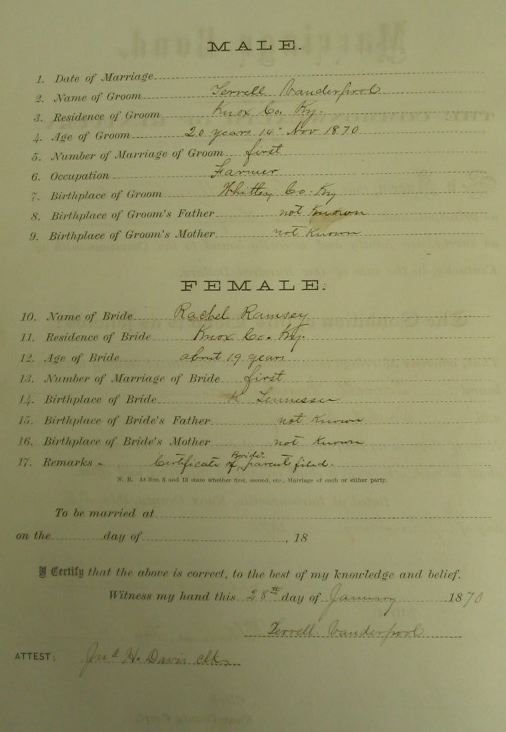 MALE.
1. Date of Marriage
2. Name of Groom Terrell Vanderpool
3. Residence of Groom Knox Co. Ky.
4. Age of Groom 20 years 14th Nov 1870
5. Number of Marriage of Groom first
6. Occupation Farmer
7. Birthplace of Groom Whitley Co. Ky
8. Birthplace of Groom's Father not known
9. Birthplace of Groom's Mother not known
FEMALE.
10. Name of Bride Rachel Ramsey
11. Residence of Bride Knox Co. Ky.
12. Age of Bride about 19 years
13. Number of Marriage of Bride first
14. Birthplace of Bride Tennessee
15. Birthplace of Bride's Father not known
16. Birthplace of Bride's Mother not known
17. Remarks Certificate of Bride's parent filed.
N. B. At Nos. 5 and 13 state whether first, second, etc., Marriage of each or either party.
To be married at
on the day of , 18
I Certify that the above is correct, to the best of my knowledge and belief.
Witness my hand this 28th day of January 1870
Terrell Vanderpool
ATTEST: H. Davis